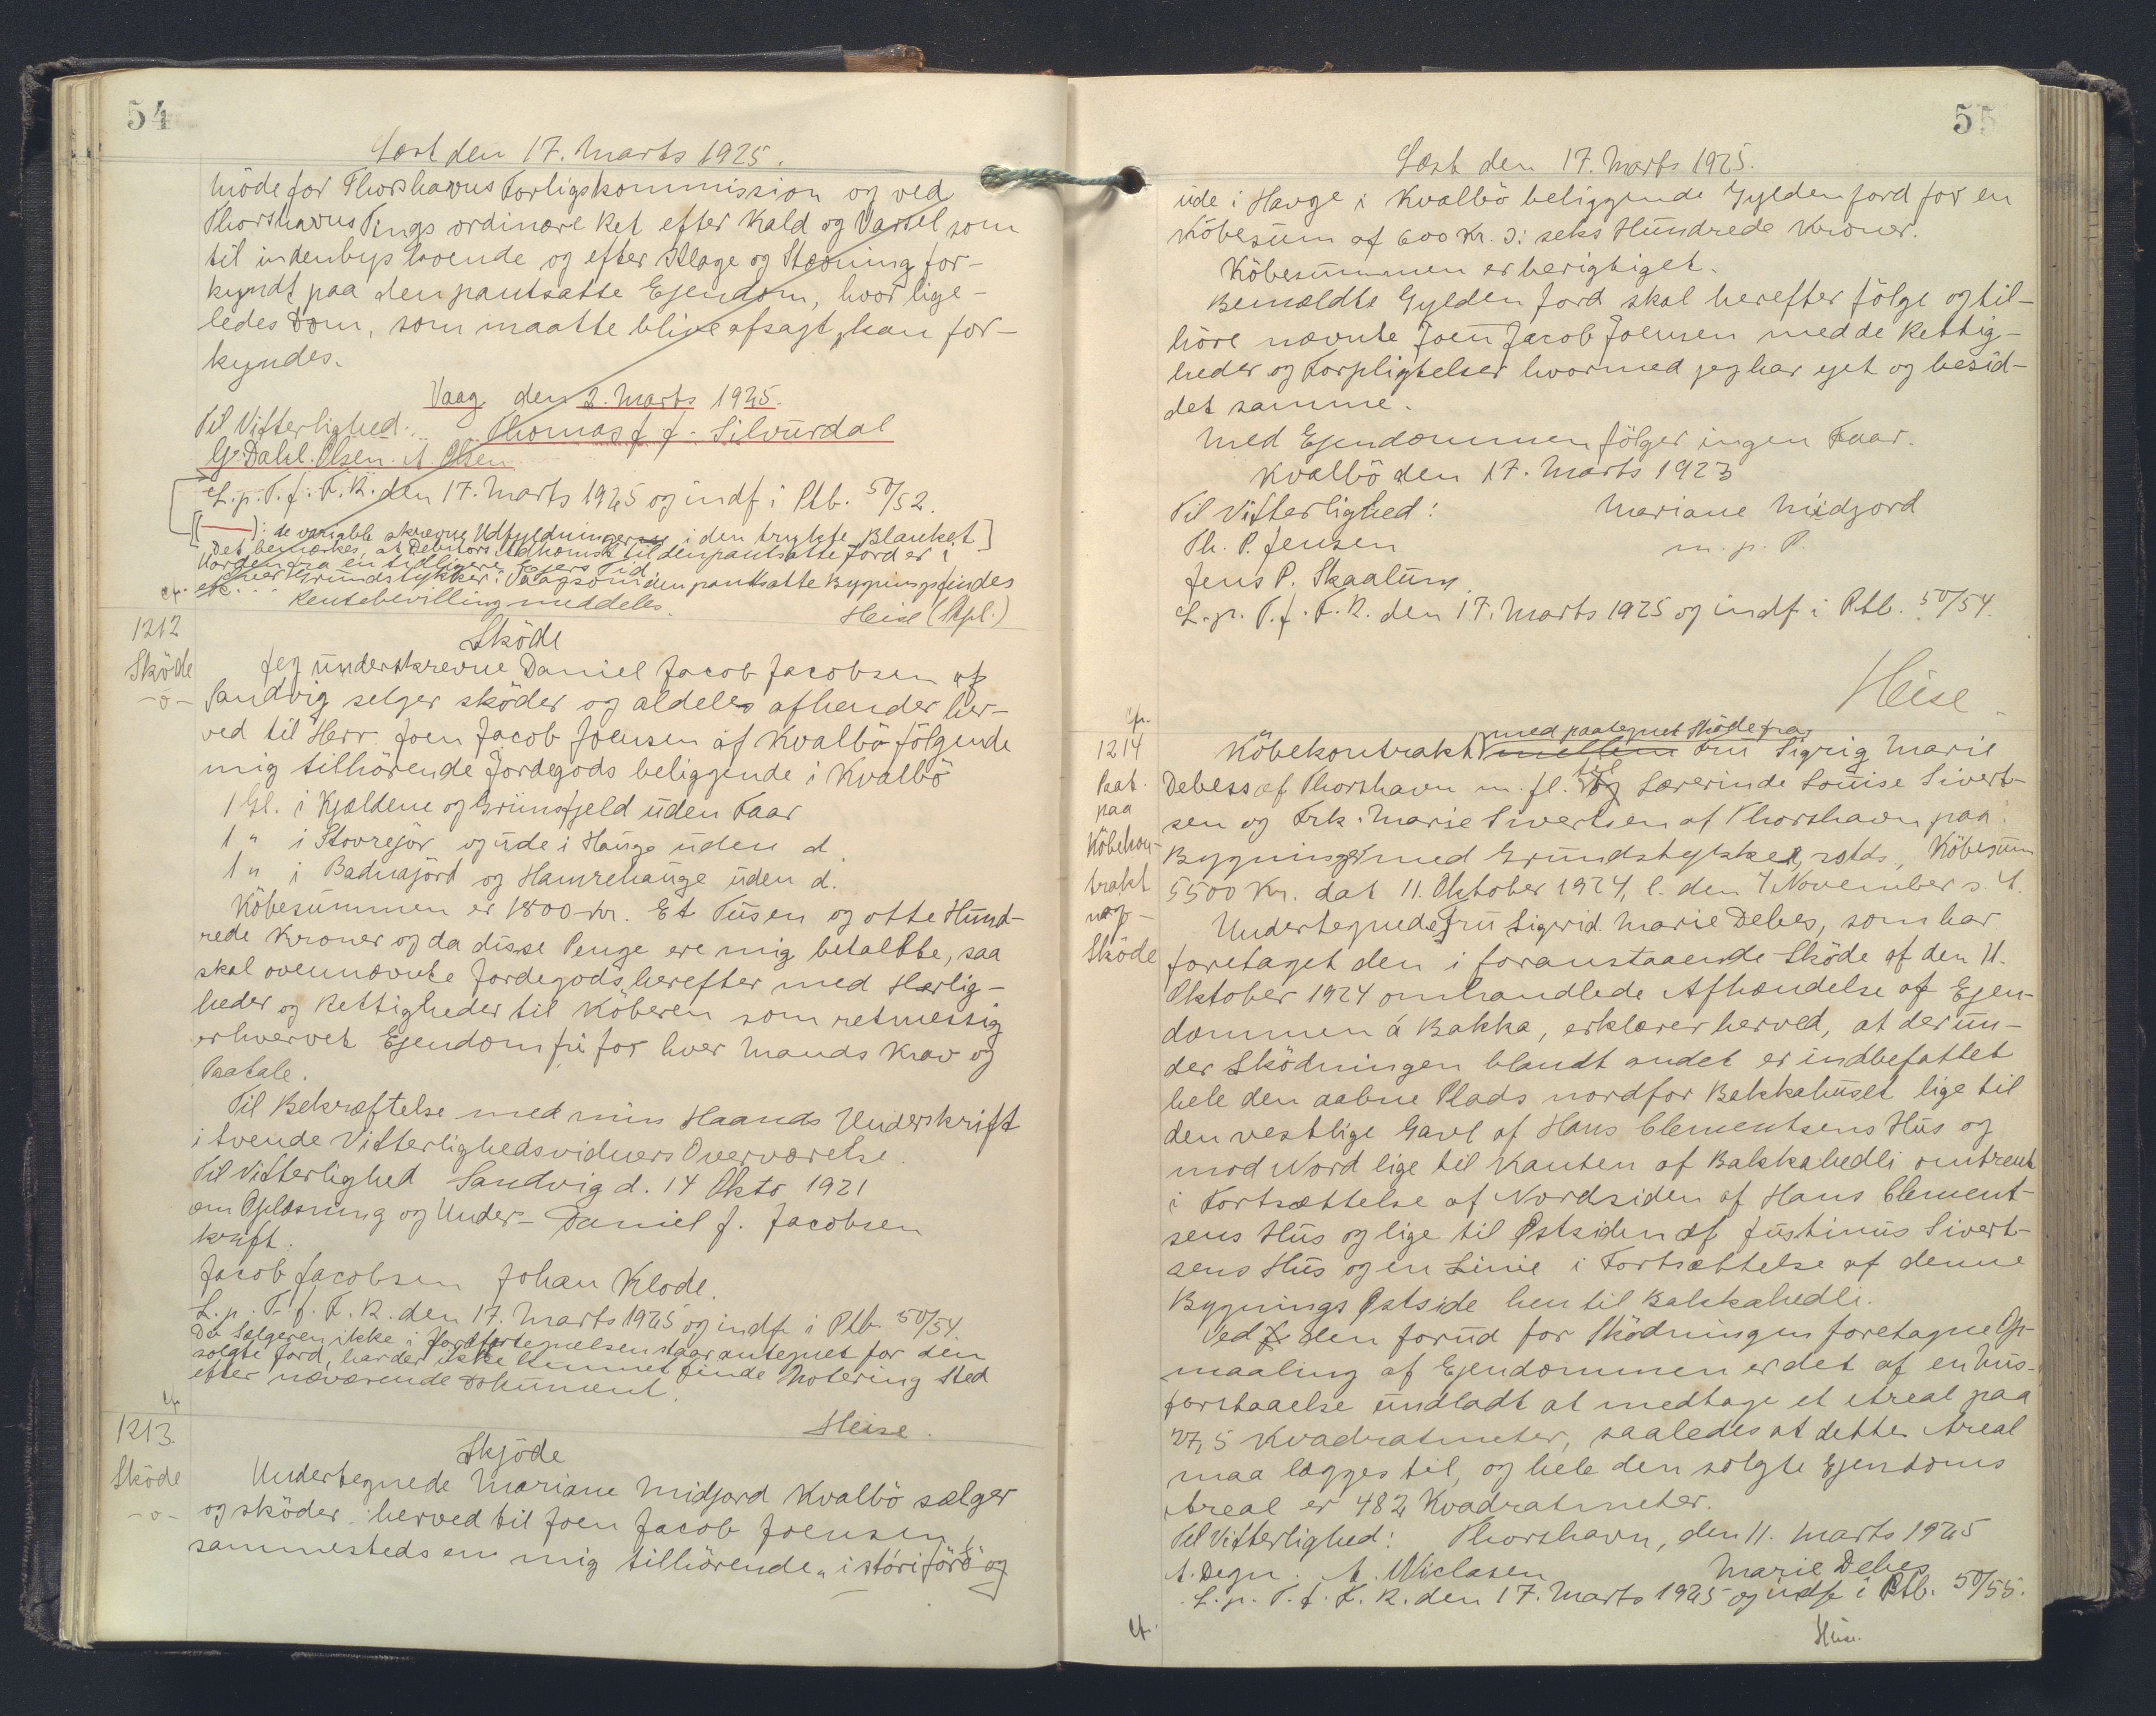 54
Læst den 17. Marts 1925.
Möde for Thorshavns Forligskommission og ved
Thorshavns Tings ordinære Ret efter Kald og Varsel som
til indenbys boende og efter Klage og Stævning for-
kyndt paa den pantsatte Ejendom, hvor lige-
ledes Dom, som maatte blive afsagt, kan for-
kyndes.
Vaag den 2. Marts 1925.
Til Vitterlighed: Thomas J. J. Silvurdal
G. Dahl. Olsen. A. Olsen
L. p. T. f. F. R. den 17. Marts 1925 og indf i Ptb. 50/52.
[(—): de variable skrevne Udfyldninger i den trykte Blanket]
Det bemærkes, at Debitors Adkomst til den pantsatte Jord er i
Orden fra en tidligere Ejers Tid
Grundstykker i Vaag som den pantsatte Bygnings findes
Rentebevilling meddeles.
Heise (Kpl.)
cfr.
1212
Sköde
-o-
Sköde
Jeg underskrevne Daniel Jacob Jacobsen af
Sandvig selger sköder og aldeles afhender her-
ved til Herr Joen Jacob Joensen af Kvalbö fölgende
mig tilhörende Jordegods beliggende i Kvalbö
1 Gl. i Kjældene og Grimsfjeld uden Faar
1 " i Stovrejör og ude i Hauge uden d.
1 " i Badnajörd og Hamrehauge uden d.
Köbesummen er 1800 Kr. Et Tusen og otte Hund-
rede Kroner og da disse Penge ere mig betalte, saa
skal ovennævnte Jordegods herefter med Herlig-
heder og Rettigheder til Köberen som retmessig
erhvervet Ejendom fri for hver Mands Krav og
Paatale.
Til Bekræftelse med min Haands Underskrift
i tvende Vitterlighedsvidners Overværelse.
Til Vitterlighed Sandvig d. 14 Okto 1921
om Oplæsning og Under- Daniel J. Jacobsen
kruft.
Jacob Jacobsen Johan Klode.
L. p. T. f. F. R. den 17. Marts 1925 og indf i Ptb. 50/54.
Da Sælgeren ikke i Jordfortegnelsen staar antegnet for den
solgte Jord, har der ikke kunnet finde Notering Sted
efter nærværende Dokument.
cfr.
Heise.
1213.
Sköde
-o-
Skjöde
Undertegnede Mariane Midjord Kvalbö sælger
og sköder herved til Joen Jacob Joensen,
sammesteds en mig tilhörende, i stóri jörö og
55
Læst den 17. Marts 1925.
ude i Havge i Kvalbö beliggende Gylden jord for en
Köbesum af 600 Kr. ɔ: seks Hundrede Kroner.
Köbesummen er berigtiget.
Bemældte Gylden Jord skal herefter fölge og til-
höre nævnte Joen Jacob Joensen med de Rettig-
heder og Forpligtelser hvormed jeg har ejet og besid-
det samme.
Med Ejendommen fölger ingen Faar.
Kvalbö den 17. Marts 1923
Til Vitterlighed: Mariane Midjord
Th. P. Jensen m. p. P.
Jens P. Skaalum
L. p. T. f. F. R. den 17. Marts 1925 og indf i Ptb. 50/54.
Heise
cfr.
1214
Paat.
paa
Köbekon-
trakt
og
Sköde
med paategnet Sköde fra
Köbekontrakt mellem Fru Sigrig Marie
Debess af Thorshavn m. fl. til og Lærerinde Louise Sivert-
sen og Frk. Marie Sivertsen af Thorshavn paa
Bygninger med Grundstykker, sstds, Köbesum
5500 Kr. dat 11. Oktober 1924, l. den 4 November s. A.
Undertegnede Fru Sigrid Marie Debes, som har
foretaget den i foranstaaende Sköde af den 11.
Oktober 1924 omhandlede Afhændelse af Ejen-
dommen á Bakka, erklærer herved, at der un-
der Sködningen blandt andet er indbefattet
hele den aabne Plads nordfor Bakkahuset lige til
den vestlige Gavl af Hans Clementsens Hus og
mod Nord lige til Kanten af Bakkahedli omtrent
i Fortsættelse af Nordsiden af Hans Clement-
sens Hus og lige til Østsiden af Justinus Sivert-
sens Hus og en Linie i Fortsættelse af denne
Bygnings Østside hen til Bakkahedli.
Ved den forud for Sködningen foretagne Op-
maaling af Ejendommen er det af en Mis-
forstaaelse undladt at medtage et Areal paa
27,5 Kvadratmeter, saaledes at dette Areal
maa lægges til, og hele den solgte Ejendoms
Areal er 482 Kvadratmeter.
Til Vitterlighed: Thorshavn, den 11. Marts 1925
A. Degn. A. Niclasen Marie Debes
L. p. T. f. F. R. den 17. Marts 1925 og indf i Ptb. 50/55.
cfr.
Heise.